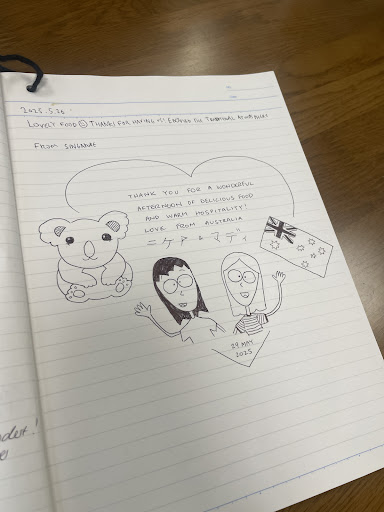 2025.5.26
LOVELY FOOD THANKS FOR HAVING US! ENJOYED THE TRADITIONAL
FROM SINGAPORE
THANK YOU FOR A WONDERFUL
AFTERNOON OF DELICIOUS FOOD
AND WARM HOSPITALITY!
LOVE FROM AUSTRALIA
ニケア & マディ
29 MAY
2025